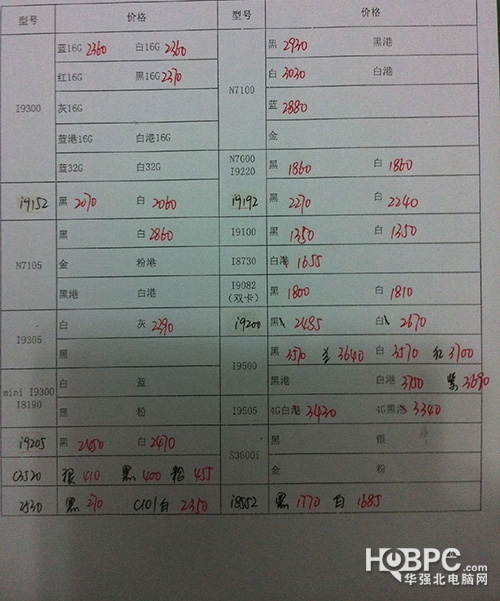 型号 价格 型号 价格
I9300 蓝16G 2360 白16G 2360
红16G 黑16G 2370
灰16G
蓝港16G 白港16G
蓝32G 白32G
N7100 黑 2930 黑港
白 3030 白港
蓝 2880
金
N7000 I9220 黑 1860 白 1860
i9152 黑 2070 白 2060
i9192 黑 2270 白 2240
N7105 黑 白 2860
金 粉港
黑港 白港
I9100 黑 1350 白 1350
I8730 白港 1655
I9082 (双卡) 黑 1800 白 1810
I9305 白 灰 2390
黑
i9200 黑 2485 白 2670
I9500 黑 3570 3640 白 3570 红 3700
黑港 白港 3750 紫 3690
mini I9300 I8190 白 蓝
黑 粉
I9505 4G白港 3430 4G黑港 3340
i9205 黑 2450 白 2470
S3600i 黑 银
金 粉
C3520 银 410 黑 400 粉 455
2530 黑 270 C101白 2350
i8552 黑 1770 白 1685
HQBPC.com
华强北电脑网